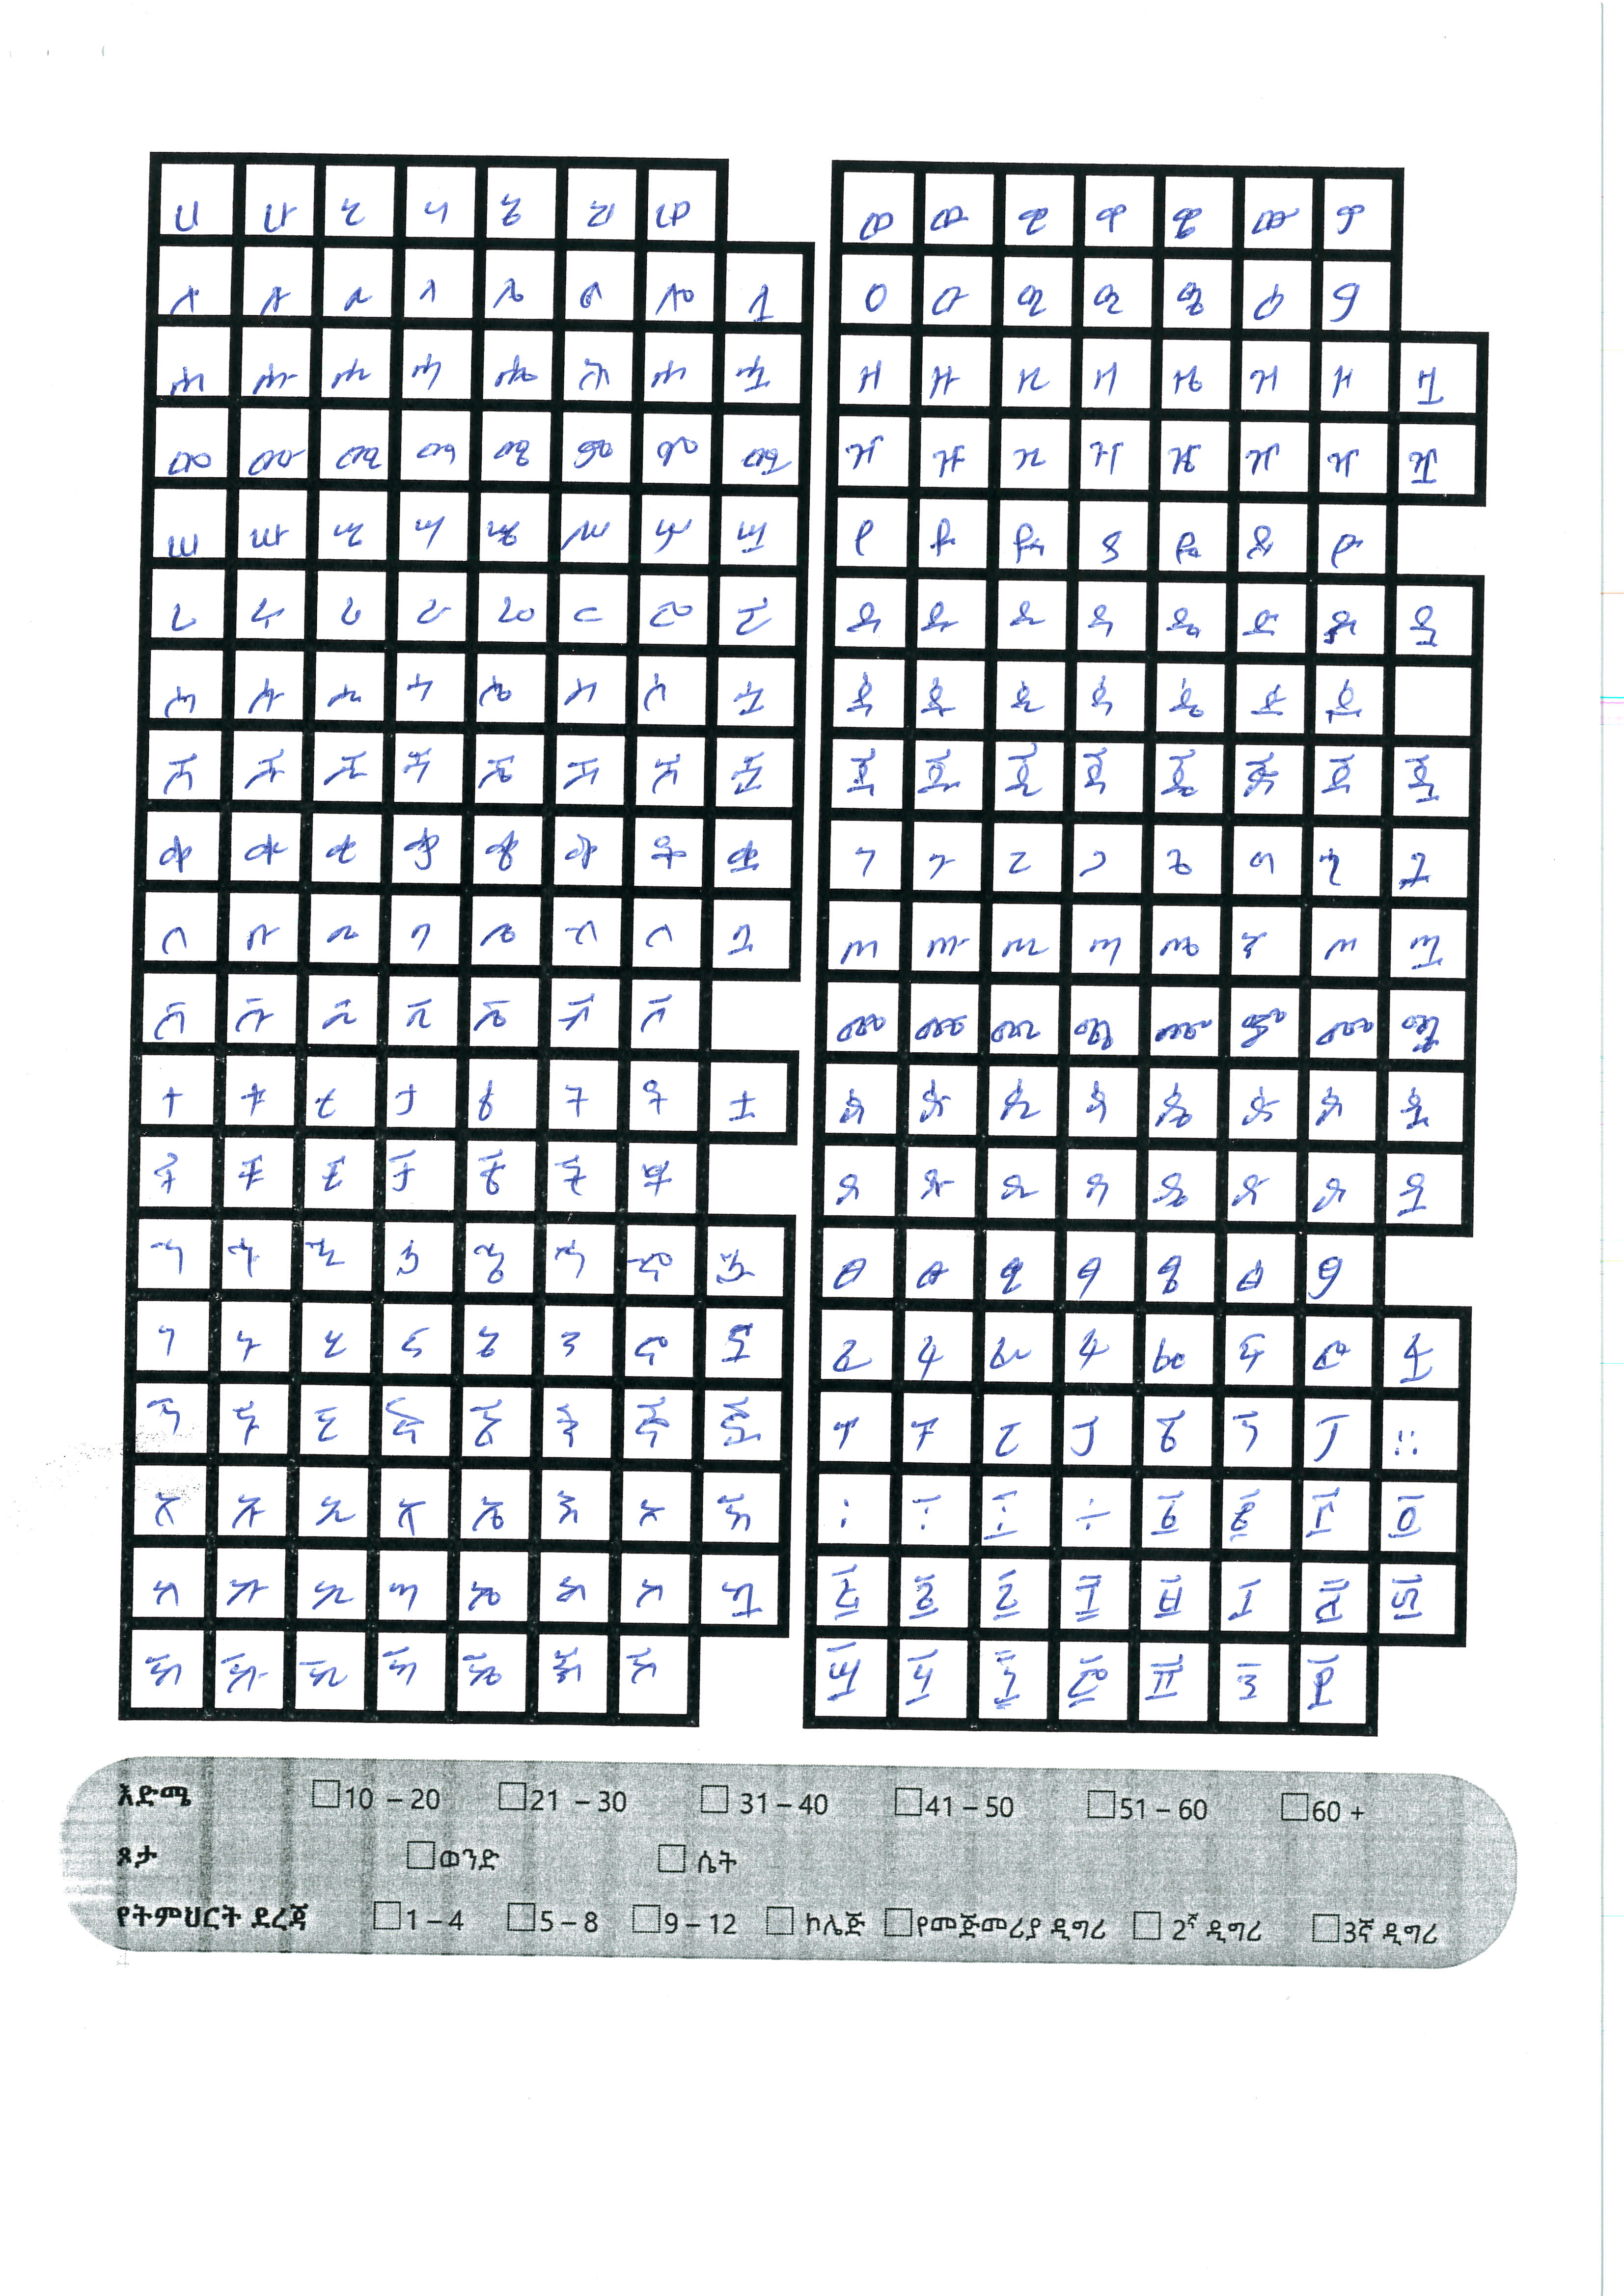 ሀ ሁ ሂ ሃ ሄ ህ ሆ
ለ ሉ ሊ ላ ሌ ል ሎ ሏ
ሐ ሑ ሒ ሓ ሔ ሕ ሖ ሗ
መ ሙ ሚ ማ ሜ ም ሞ ሟ
ሠ ሡ ሢ ሣ ሤ ሥ ሦ ሧ
ረ ሩ ሪ ራ ሬ ር ሮ ሯ
ሰ ሱ ሲ ሳ ሴ ስ ሶ ሷ
ሸ ሹ ሺ ሻ ሼ ሽ ሾ ሿ
ቀ ቁ ቂ ቃ ቄ ቅ ቆ ቋ
በ ቡ ቢ ባ ቤ ብ ቦ ቧ
ቨ ቩ ቪ ቫ ቬ ቭ ቮ
ተ ቱ ቲ ታ ቴ ት ቶ ቷ
ቸ ቹ ቺ ቻ ቼ ች ቾ
ኀ ኁ ኂ ኃ ኄ ኅ ኆ ኋ
ነ ኑ ኒ ና ኔ ን ኖ ኗ
ኘ ኙ ኚ ኛ ኜ ኝ ኞ ኟ
አ ኡ ኢ ኣ ኤ እ ኦ ኧ
ከ ኩ ኪ ካ ኬ ክ ኮ ኳ
ኸ ኹ ኺ ኻ ኼ ኽ ኾ
ወ ዉ ዊ ዋ ዌ ው ዎ
ዐ ዑ ዒ ዓ ዔ ዕ ዖ
ዘ ዙ ዚ ዛ ዜ ዝ ዞ ዟ
ዠ ዡ ዢ ዣ ዤ ዥ ዦ ዧ
የ ዩ ዪ ያ ዬ ይ ዮ
ደ ዱ ዲ ዳ ዴ ድ ዶ ዷ
ጀ ጁ ጂ ጃ ጄ ጅ ጆ ጇ
ገ ጉ ጊ ጋ ጌ ግ ጎ ጓ
ጠ ጡ ጢ ጣ ጤ ጥ ጦ ጧ
ጨ ጩ ጪ ጫ ጬ ጭ ጮ ጯ
ጰ ጱ ጲ ጳ ጴ ጵ ጶ ጷ
ጸ ጹ ጺ ጻ ጼ ጽ ጾ ጿ
ፀ ፁ ፂ ፃ ፄ ፅ ፆ
ፈ ፉ ፊ ፋ ፌ ፍ ፎ ፏ
ፐ ፑ ፒ ፓ ፔ ፕ ፖ ።
፡ ፥ ፤ ÷ ፮ ፰ ፲ ፬
እድሜ 10 – 20 21 – 30 31 – 40 41 – 50 51 – 60 60 +
ጾታ ወንድ ሴት
የትምህርት ደረጃ 1 – 4 5 – 8 9 – 12 ኮሌጅ የመጅመሪያ ዲግሪ 2ኛ ዲግሪ 3ኛ ዲግሪ